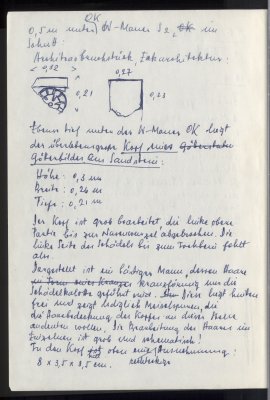 OK
0,5 m unter W-Mauer S 2, OK im
Schutt:
Architravbruchstück, Tuk architektur:
< 0,12 > 0,27
0,21 0,23
Ebenso tief unter der W-Mauer OK liegt
der überlebensgroße Kopf eines
Götterbildes aus Sandstein:
Höhe: 0,3 m
Breite: 0,26 m
Tiefe: 0,21 m
Der Kopf ist grob bearbeitet, die linke obere
Partie bis zur Nasenwurzel abgebrochen. Die
linke Seite des Schädels bis zum Jochbein fehlt
also.
Dargestellt ist ein bärtiger Mann, dessen Haare
in Form eines Kranzes kranzförmig um die
Schädelkalotte geführt sind. Diese liegt hinten
frei und zeigt lediglich Meißelspuren, die
die Ausarbeitung des Kopfes an dieser Stelle
andeuten wollen. Die Bearbeitung der Haare im
Einzelnen ist grob und schematisch!
In den Kopf ist oben eine Ausnehmung:
8 x 3,5 x 8,5 cm. rechteckige